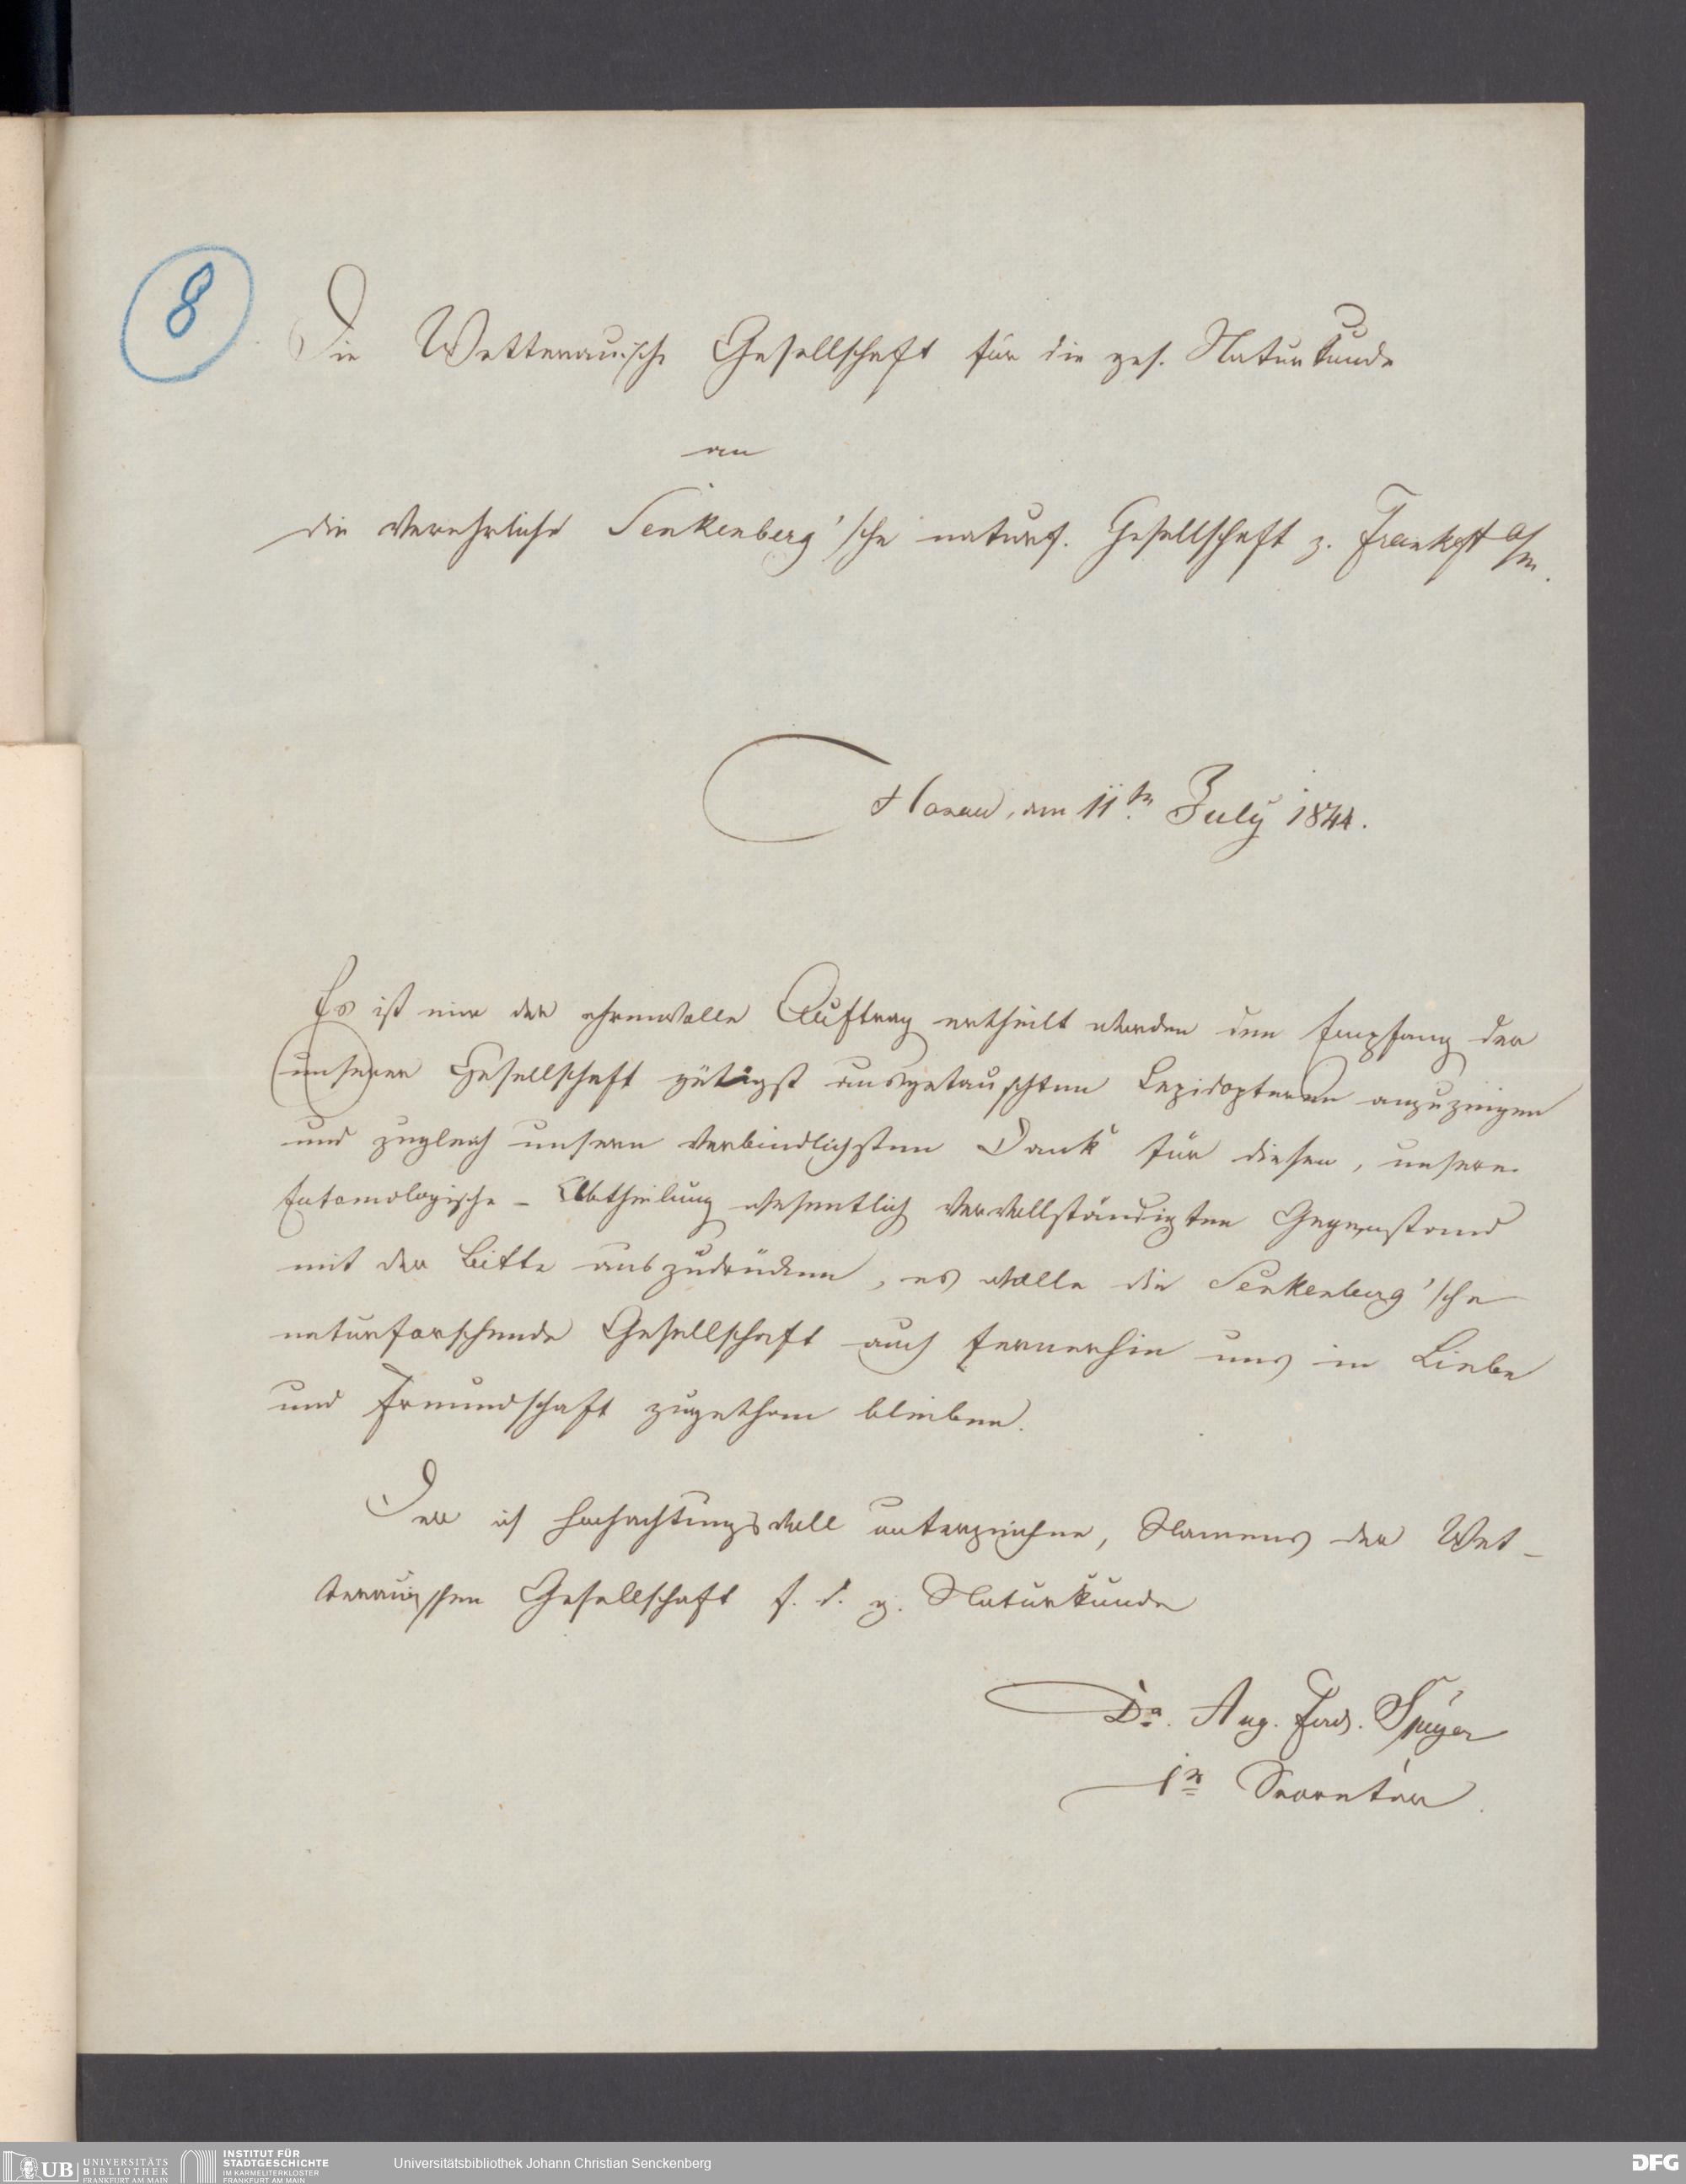 8
Die Wetterauische Gesellschaft für die ges. Naturkunde
an
die verehrliche Senkenberg'sche naturf. Gesellschaft z. Frankfft a/m.
Hanau, am 11tn July 1844.
Es ist mir der ehrenvolle Auftrag ertheilt worden den Empfang der
unserer Gesellschaft gütigst ausgetauschten Lepidopteren anzuzeigen
und zugleich unsern verbindlichsten Dank für diesen, unsere
Entomologische - Abtheilung wesentlich vervollständigten Gegenstand
mit der Bitte auszudrücken, es wolle die Senkenberg'sche
naturforschende Gesellschaft auch fernerhin uns in Liebe
und Freundschaft zugethan bleiben.
Der ich hochachtungsvoll unterzeichne, Namens der Wet-
terauischen Gesellschaft f. d. g. Naturkunde
Dr. Aug. Ferd. Speyer
1r Secretär.
UB UNIVERSITÄTS BIBLIOTHEK FRANKFURT AM MAIN
INSTITUT FÜR STADTGESCHICHTE IM KARMELITERKLOSTER FRANKFURT AM MAIN
Universitätsbibliothek Johann Christian Senckenberg
DFG